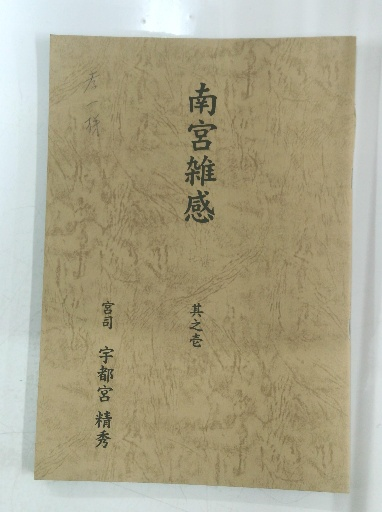 南宮雑感
其之壱
宮司 宇都宮 精秀